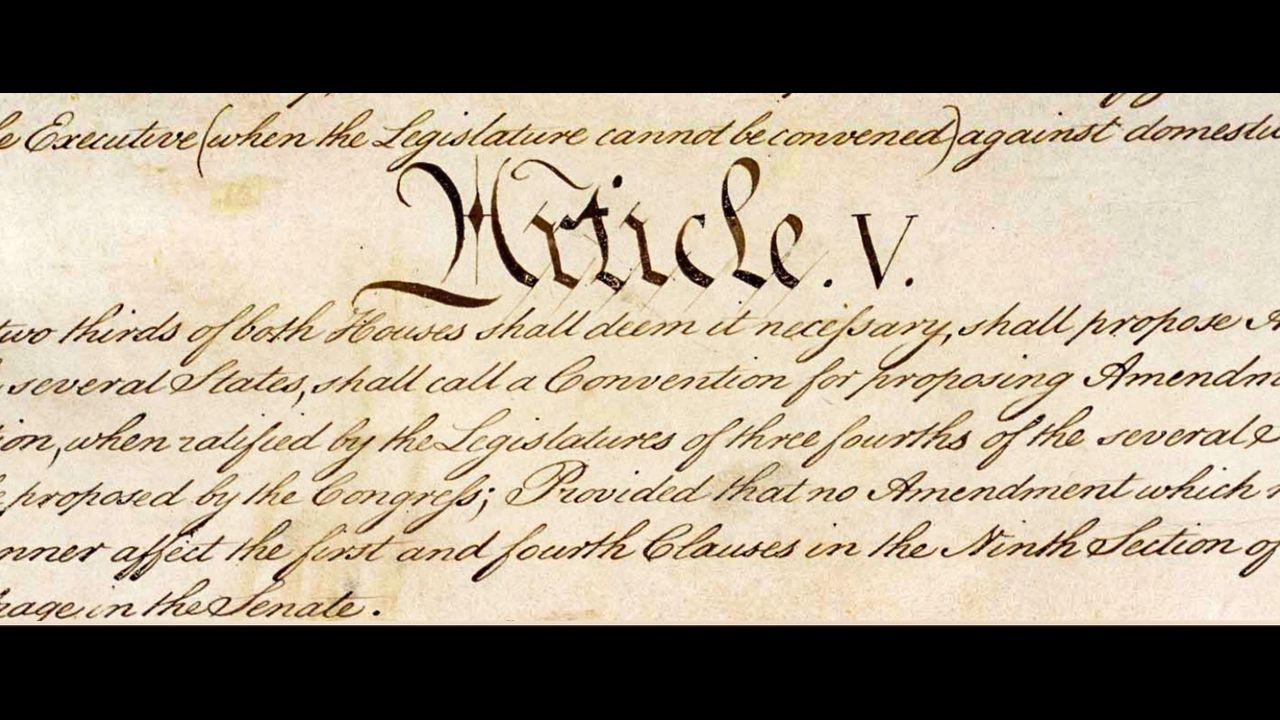 e Executive (when the Legislature cannot be convened) against domestic
Article. V.
two thirds of both Houses shall deem it neceſsary, shall propose A
several States, shall call a Convention for proposing Amendm
ion, when ratified by the Legislatures of three fourths of the several
e proposed by the Congreſs; Provided that no Amendment which
nner affect the first and fourth Clauses in the Ninth Section of
rage in the Senate.